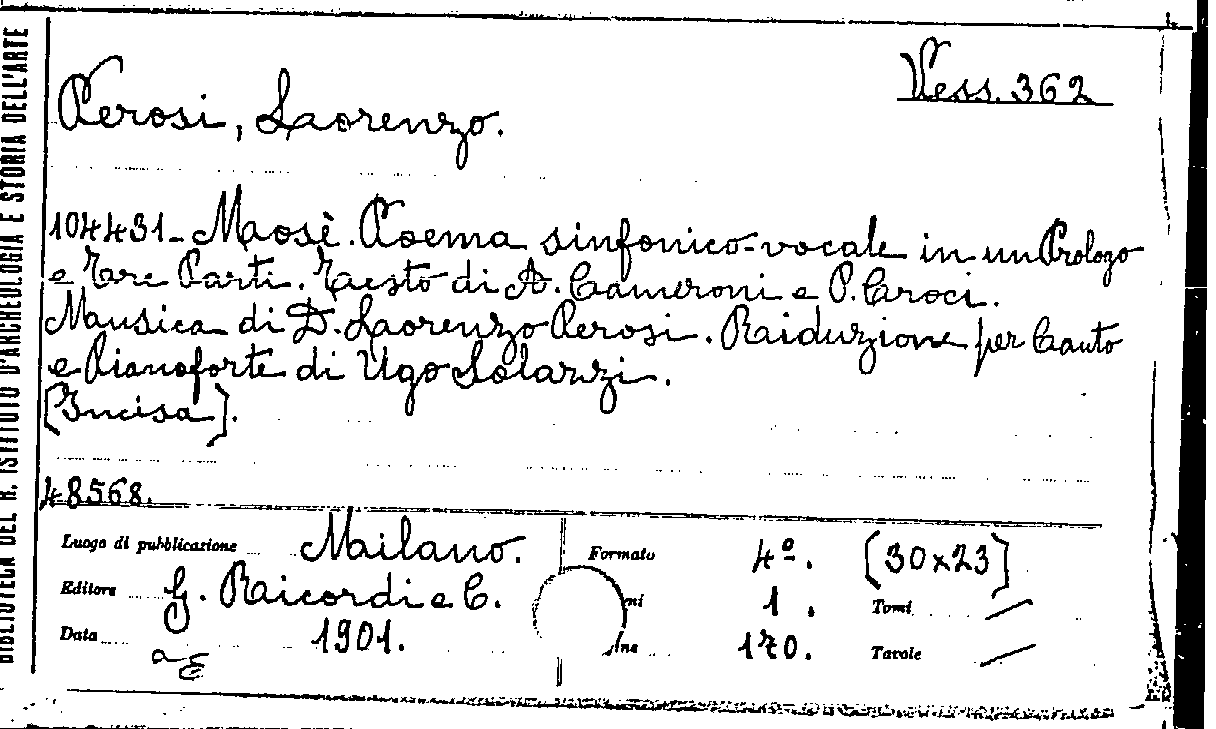 BIBLIOTECA DEL R. ISTITUTO D'ARCHEOLOGIA E STORIA DELL'ARTE
Vess. 362
Perosi, Lorenzo.
104431 - Mosè. Poema sinfonico-vocale in un Prologo
e Tre Parti. Testo di A. Cameroni e P. Croci.
Musica di D. Lorenzo Perosi. Riduzione per Canto
e Pianoforte di Ugo Solazzi.
[Incisa].
48568.
Luogo di pubblicazione Milano. Formato 4º. [30x23]
Editore G. Ricordi e C. mi 1. Tomi /
Data 1901. ine 170. Tavole /